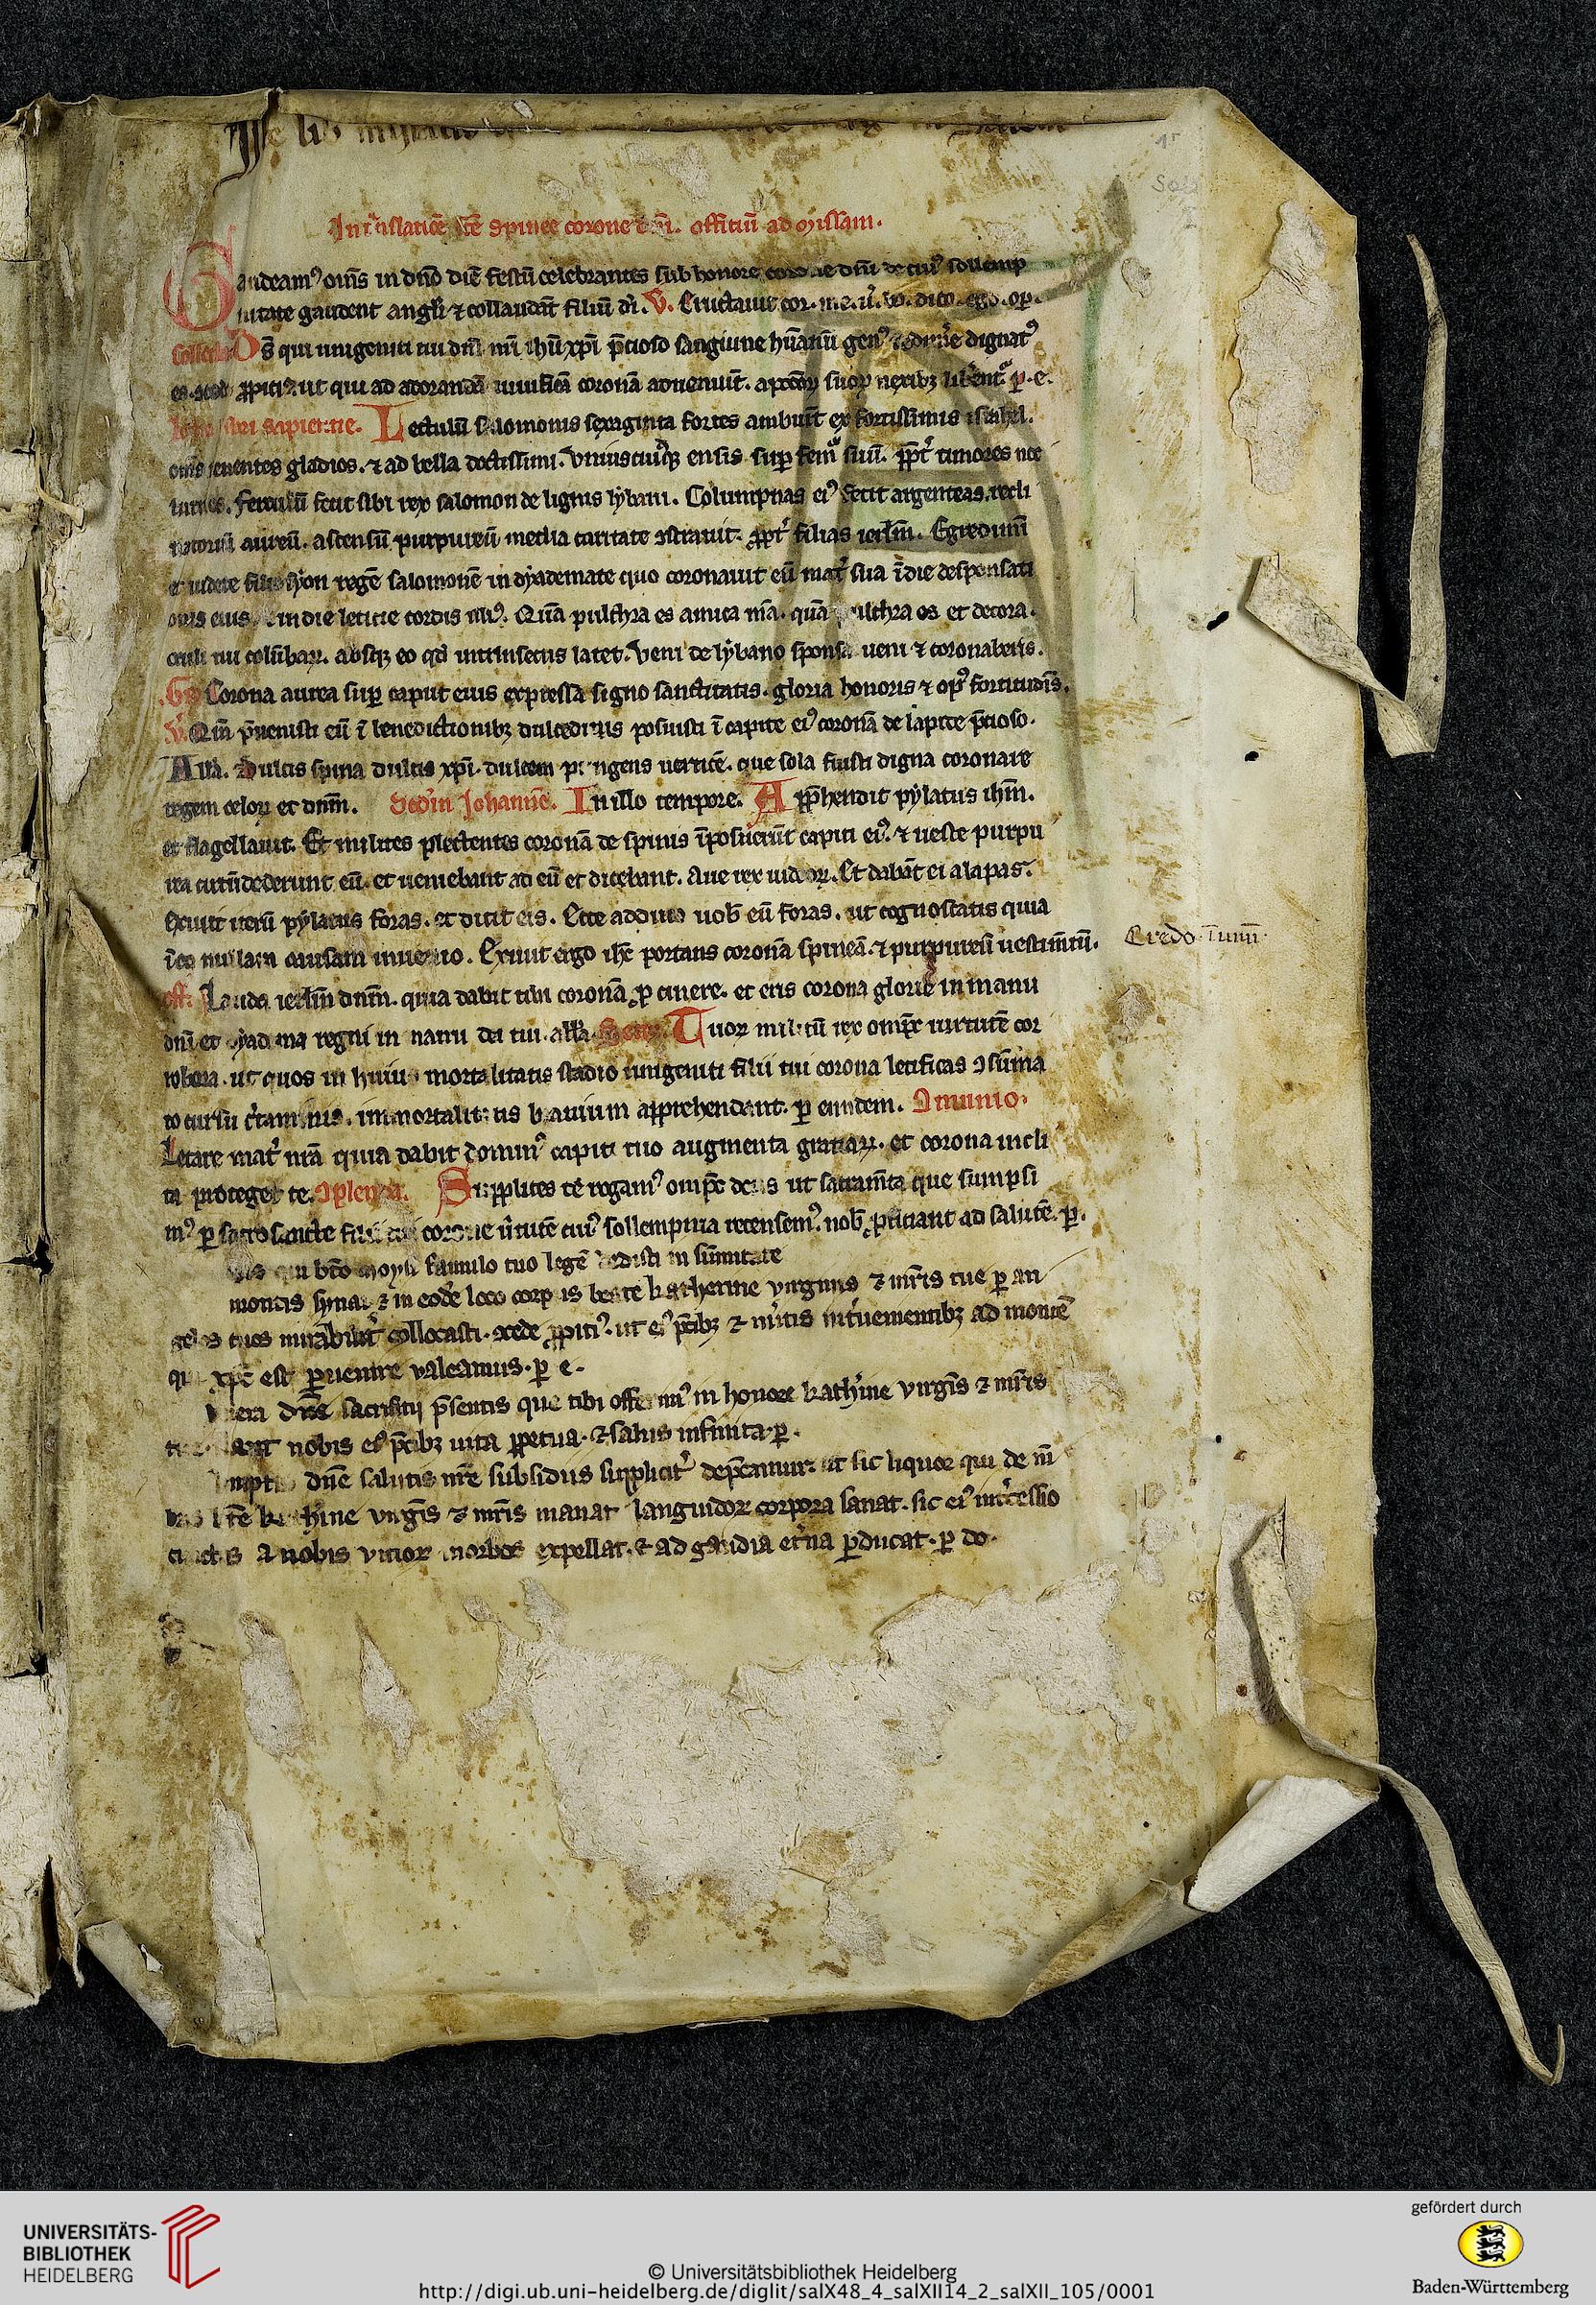 1r
In tͣnslatiōe scē spinee corone dn̄i. offitiū ad missam.
Gaudeamꝰ om̄s in dn̄o diē festū celebrantes sub honore corone dn̄i de cuiꝰ sollemp
nitate gaudent angli ⁊ collaudāt filiū dī. V̄. Eructauit cor. me. ū. bo. dico. ego. op.
Collecta Ds̄ qui unigeniti tui dn̄i nr̄i ihū xp̄i p̄cioso sanguine hūanū genꝰ redimẽ dignatꝰ
es. ꝓpiciꝰ ut qui ad adorandā uiuificā coronā aduenūt. a pccōꝝ suoꝝ nexibꝫ libẽntᷣ. ꝑ. e.
libri sapientie. Lectulū salomonis sexaginta fortes ambiūt ex fortissimis israhel.
om̄s tenentes gladios. ⁊ ad bella doctissimi. Vniuscuiꝰqꝫ ensis suꝑ femᷣ suū. ꝓpt̾ timores noc
turnos. Ferculū fecit sibi rex salomon de lignis lybani. Columpnas eiꝰ fecit argenteas. recli
natoriū aureū. ascensū purpureū media caritate ꝯstrauit. ꝓpt̾ filias ierlm̄. Egredimī
et uidete filie syon regē salomonē in dyademate quo coronauit eū mat̾ sua ī die desponsati
onis eius in die leticie cordis eiꝰ. Quā pulchra es amica mā. quā pulchra es et decora.
oculi tui colūbaꝝ. absqꝫ eo qd̄ intrinsecus latet. Veni de lybano sponsa ueni ⁊ coronaberis.
Gͬ Corona aurea suꝑ caput eius expressa signo sanctitatis. gloria honoris ⁊ opꝰ fortitudīs.
V̄. Qm̄ p̄uenisti eū ī benedictionibꝫ dulcedinis posuisti ī capite eiꝰ coronā de lapide p̄cioso.
Alla. Dulcis spina dulcis xp̄i. dulcem pungens uerticē. que sola fuisti digna coronare
regem celoꝝ et dnm̄. Scdm̄ Johannē. In illo tempore. Apphendit pylatus ihm̄.
et flagellauit. Et milites plectentes coronā de spinis īposuerūt capiti eiꝰ. ⁊ ueste purpu
rea circūdederunt eū. et ueniebant ad eū et dicebant. Aue rex iudeoꝝ. Et dabāt ei alapas.
Exiuit iterū pylatus foras. et dicit eis. Ecce adduco uob̄ eū foras. ut cognoscatis quia
ī eo nullam causam inuenio. Exiuit ergo ihc̄ portans coronā spineā. ⁊ purpureū uestim̄tū.
Credo. ī unū.
off. Lauda ierlm̄ dnm̄. quia dabit tibi coronā ꝓ cinere. et eris corona glorie in manu
dn̄i et dyadema regni in manu dei tui. alla. Secͬ. Tuoꝝ militū rex omp̄s uirtutē cor
robora. ut quos in huius mortalitatis stadio unigeniti filii tui corona letificas ꝯsūma
to cursu c̾taminis. immortalitatis brauium apprehendant. ꝑ eundem. ꝯmunio.
Letare mat̾ nr̄a quia dabit dominꝰ capiti tuo augmenta gratiaꝝ. et corona incli
ta proteget te. ꝯplenda. Supplices te rogamꝰ omp̄s deus ut sacram̄ta que sumpsi
mꝰ ꝑ sacrosancte filii tui corone ūtutē cuiꝰ sollempnia recensemꝰ. nob̄ ꝓficiant ad salutē. ꝑ.
qui btō moysi famulo tuo legē dedisti in sūmitate
montis synai ⁊ in eodē loco corpus beate katherine virginis ⁊ mr̄is tue ꝑ an
gelos tuos mirabilit̾ collocasti. ꝯcede ꝓpitiꝰ. ut eiꝰ p̄cibꝫ ⁊ m̾itis int̾uenientibꝫ ad montē
qui xpc̄ est ꝑuenire valeamus. ꝑ e.
dn̄e sacrificij p̄sentis que tibi offerimꝰ in honore kath̾ine virgīs ⁊ mr̄is
nobis eiꝰ p̄cibꝫ uita ꝑpetua. ⁊ salus infinita. ꝑ.
dn̄e salutis nr̄e subsidiis supplicit̾ dep̄camur. ut sic liquor qui de m̄
bris btē kath̾ine virgīs ⁊ mr̄is manat languidoꝝ corpora sanat. sic eiꝰ int̾cessio
a nobis vicioꝝ morbos expellat. ⁊ ad gaudia et̾na ꝑducat. ꝑ do.
UNIVERSITÄTS-
BIBLIOTHEK
HEIDELBERG
© Universitätsbibliothek Heidelberg
http://digi.ub.uni-heidelberg.de/diglit/salX48_4_salXII14_2_salXII_105/0001
gefördert durch
Baden-Württemberg